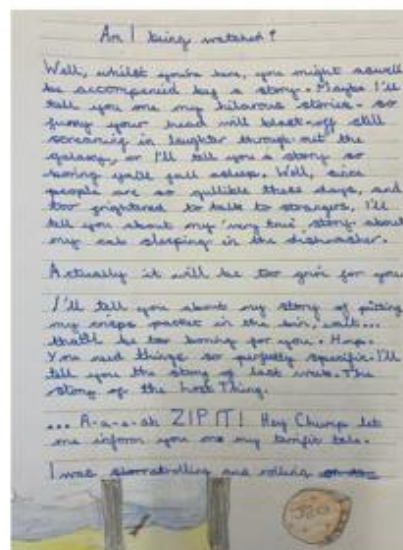 Am I being watched?
Well, whilst you're here, you might aswell
be accompanied by a story. Maybe I'll
tell you one my hilarous stories - so
funny your head will blast-off still
screaming in laughter through-out the
galaxy, or I'll tell you a story so
boring you'll fall asleep. Well, since
people are so gullible these days, and
too frightened to talk to strangers, I'll
tell you about my 'very true' story about
my cat sleeping in the dishwasher.
Actually it will be too grim for you
I'll tell you about my story of putting
my crisps packet in the bin, wait...
that'll be too boring for you. Hmp.
You need things so perfectly specific. I'll
tell you the story of last The
story of the Lost Thing.
... A-a-a-ah ZIP IT! Hey Chump let
me inform you one my terrific tale.
I was and rolling